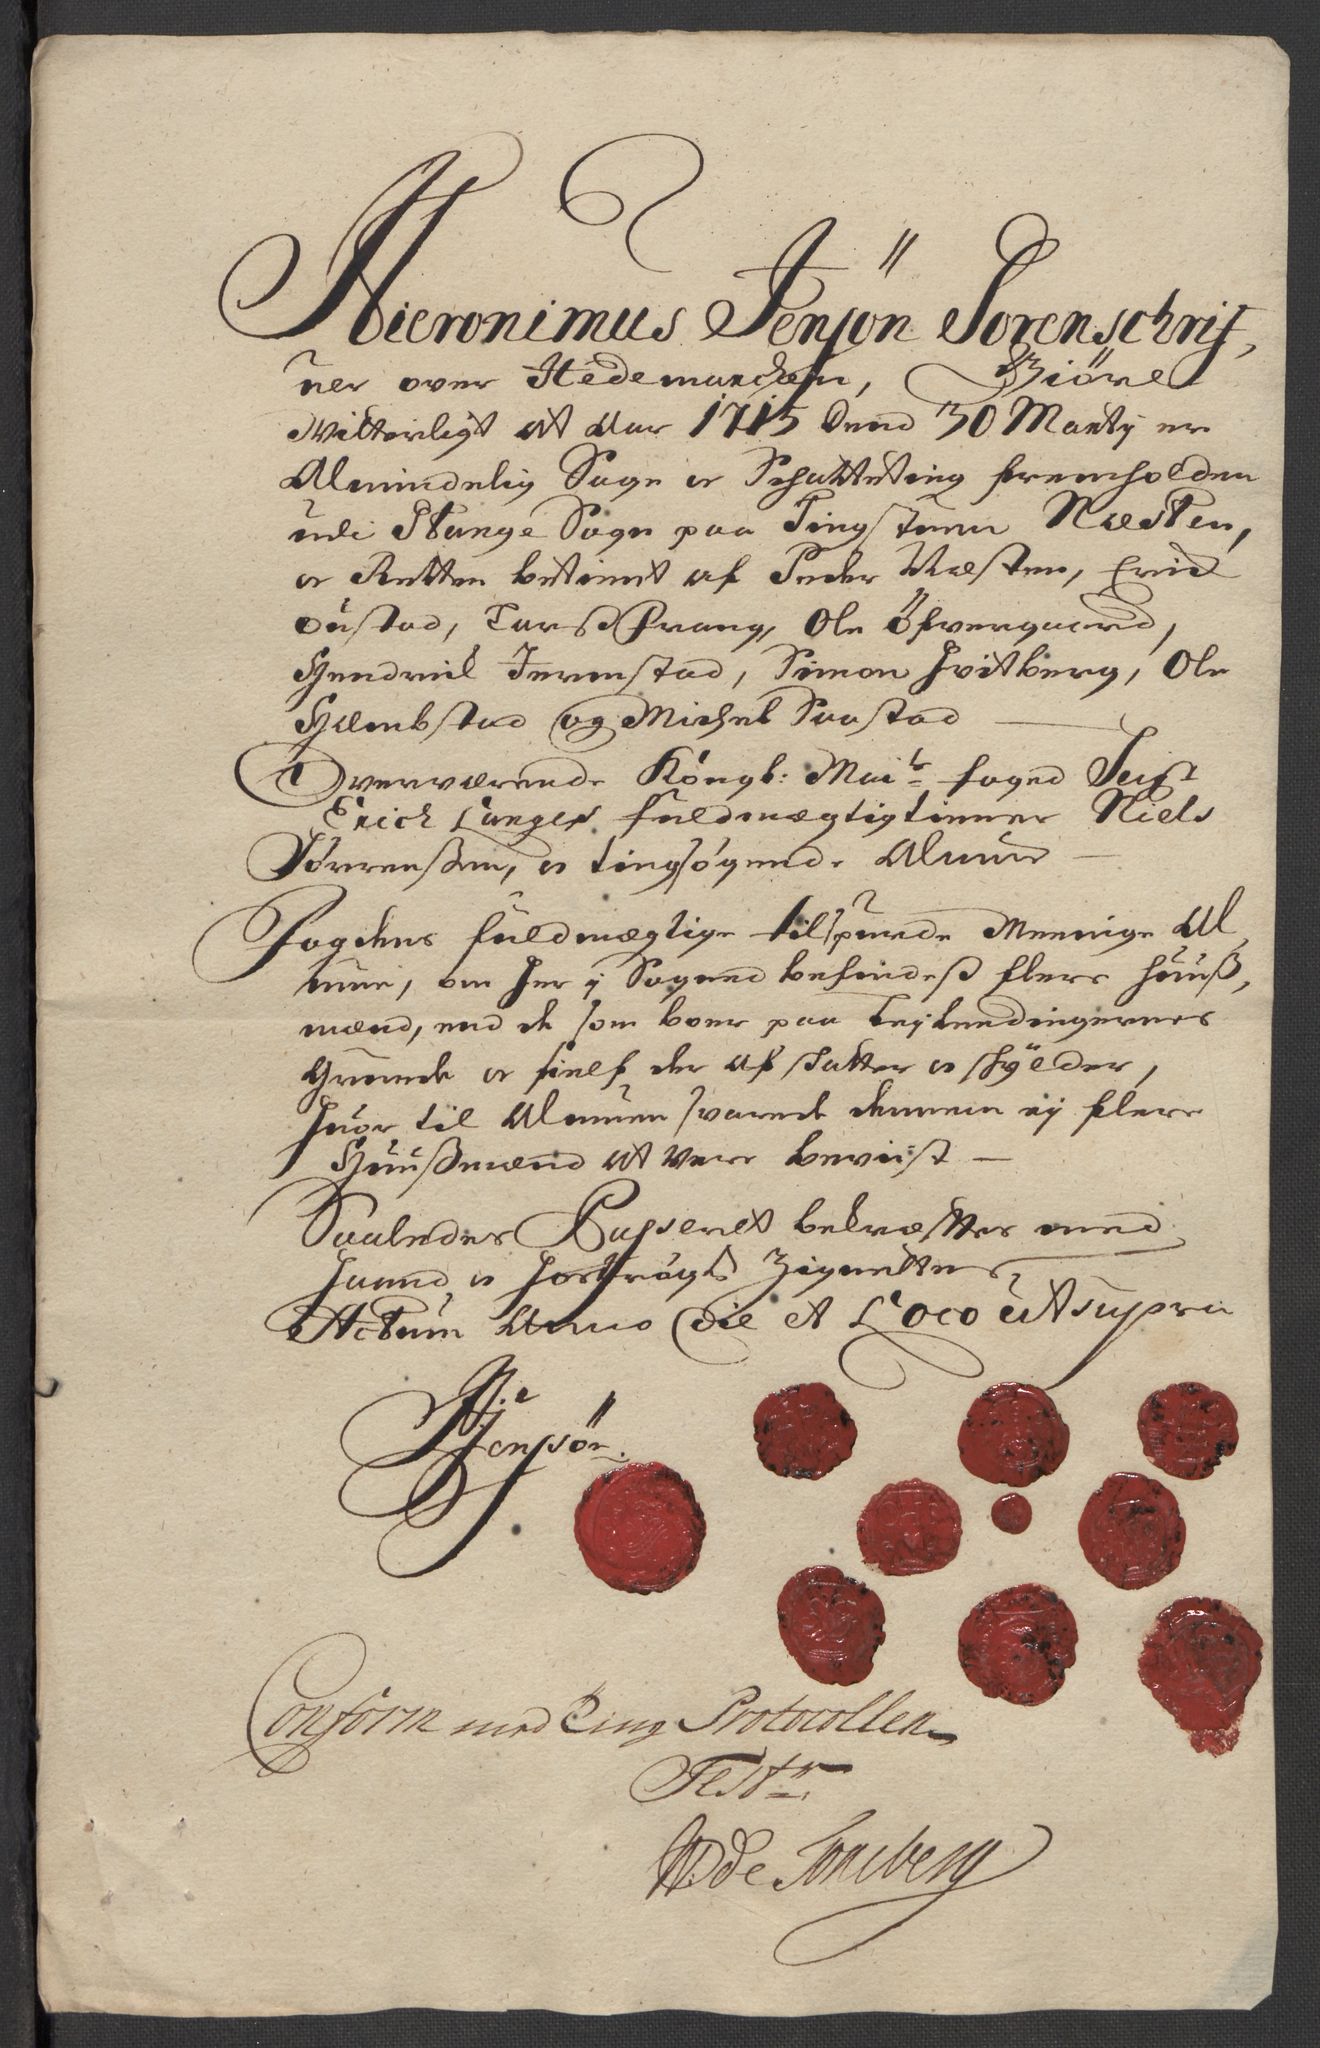 Hieronimus Jensön Sorenschrif,
ver over Hedemarchen, Giöre
Witterligt at Aar 1715 dend 30 Marty er
Almindelig Sage og Schatteting fremholden
udi Stange Sogn paa Tingstuen Næsten,
og Retten betient af Peder Næsten, Erich
Oustad, Lars Frang, Ole Öfvergaard,
Hendrich Jerenstad, Simon Hvitberg, Ole
Hæmbstad og Michel Saastad
Overværende Kongl: Mai:ts foged Seig:r
Erich Langes fuldmægtigtienner Niels
Sörrensen, og tingsøgende Almue
Fogdens fuldmægtige tilspurde Meenige Al,
mue, om her i Sognet befindes flere huuß,
mænd, end de som boer paa Leylendingernes
Grunde og sielf der af schatter og skylder,
huor til Almuen svarede dennem ey flere
Huußmænd at vere beviist
Saaledes Passeret bekræfter med
haand og hoströgt Zignetter
Actum Anno Die et Loco ut supra
HJensön
Conform med Ting Protocollen
Test:r
W de Tonsberg